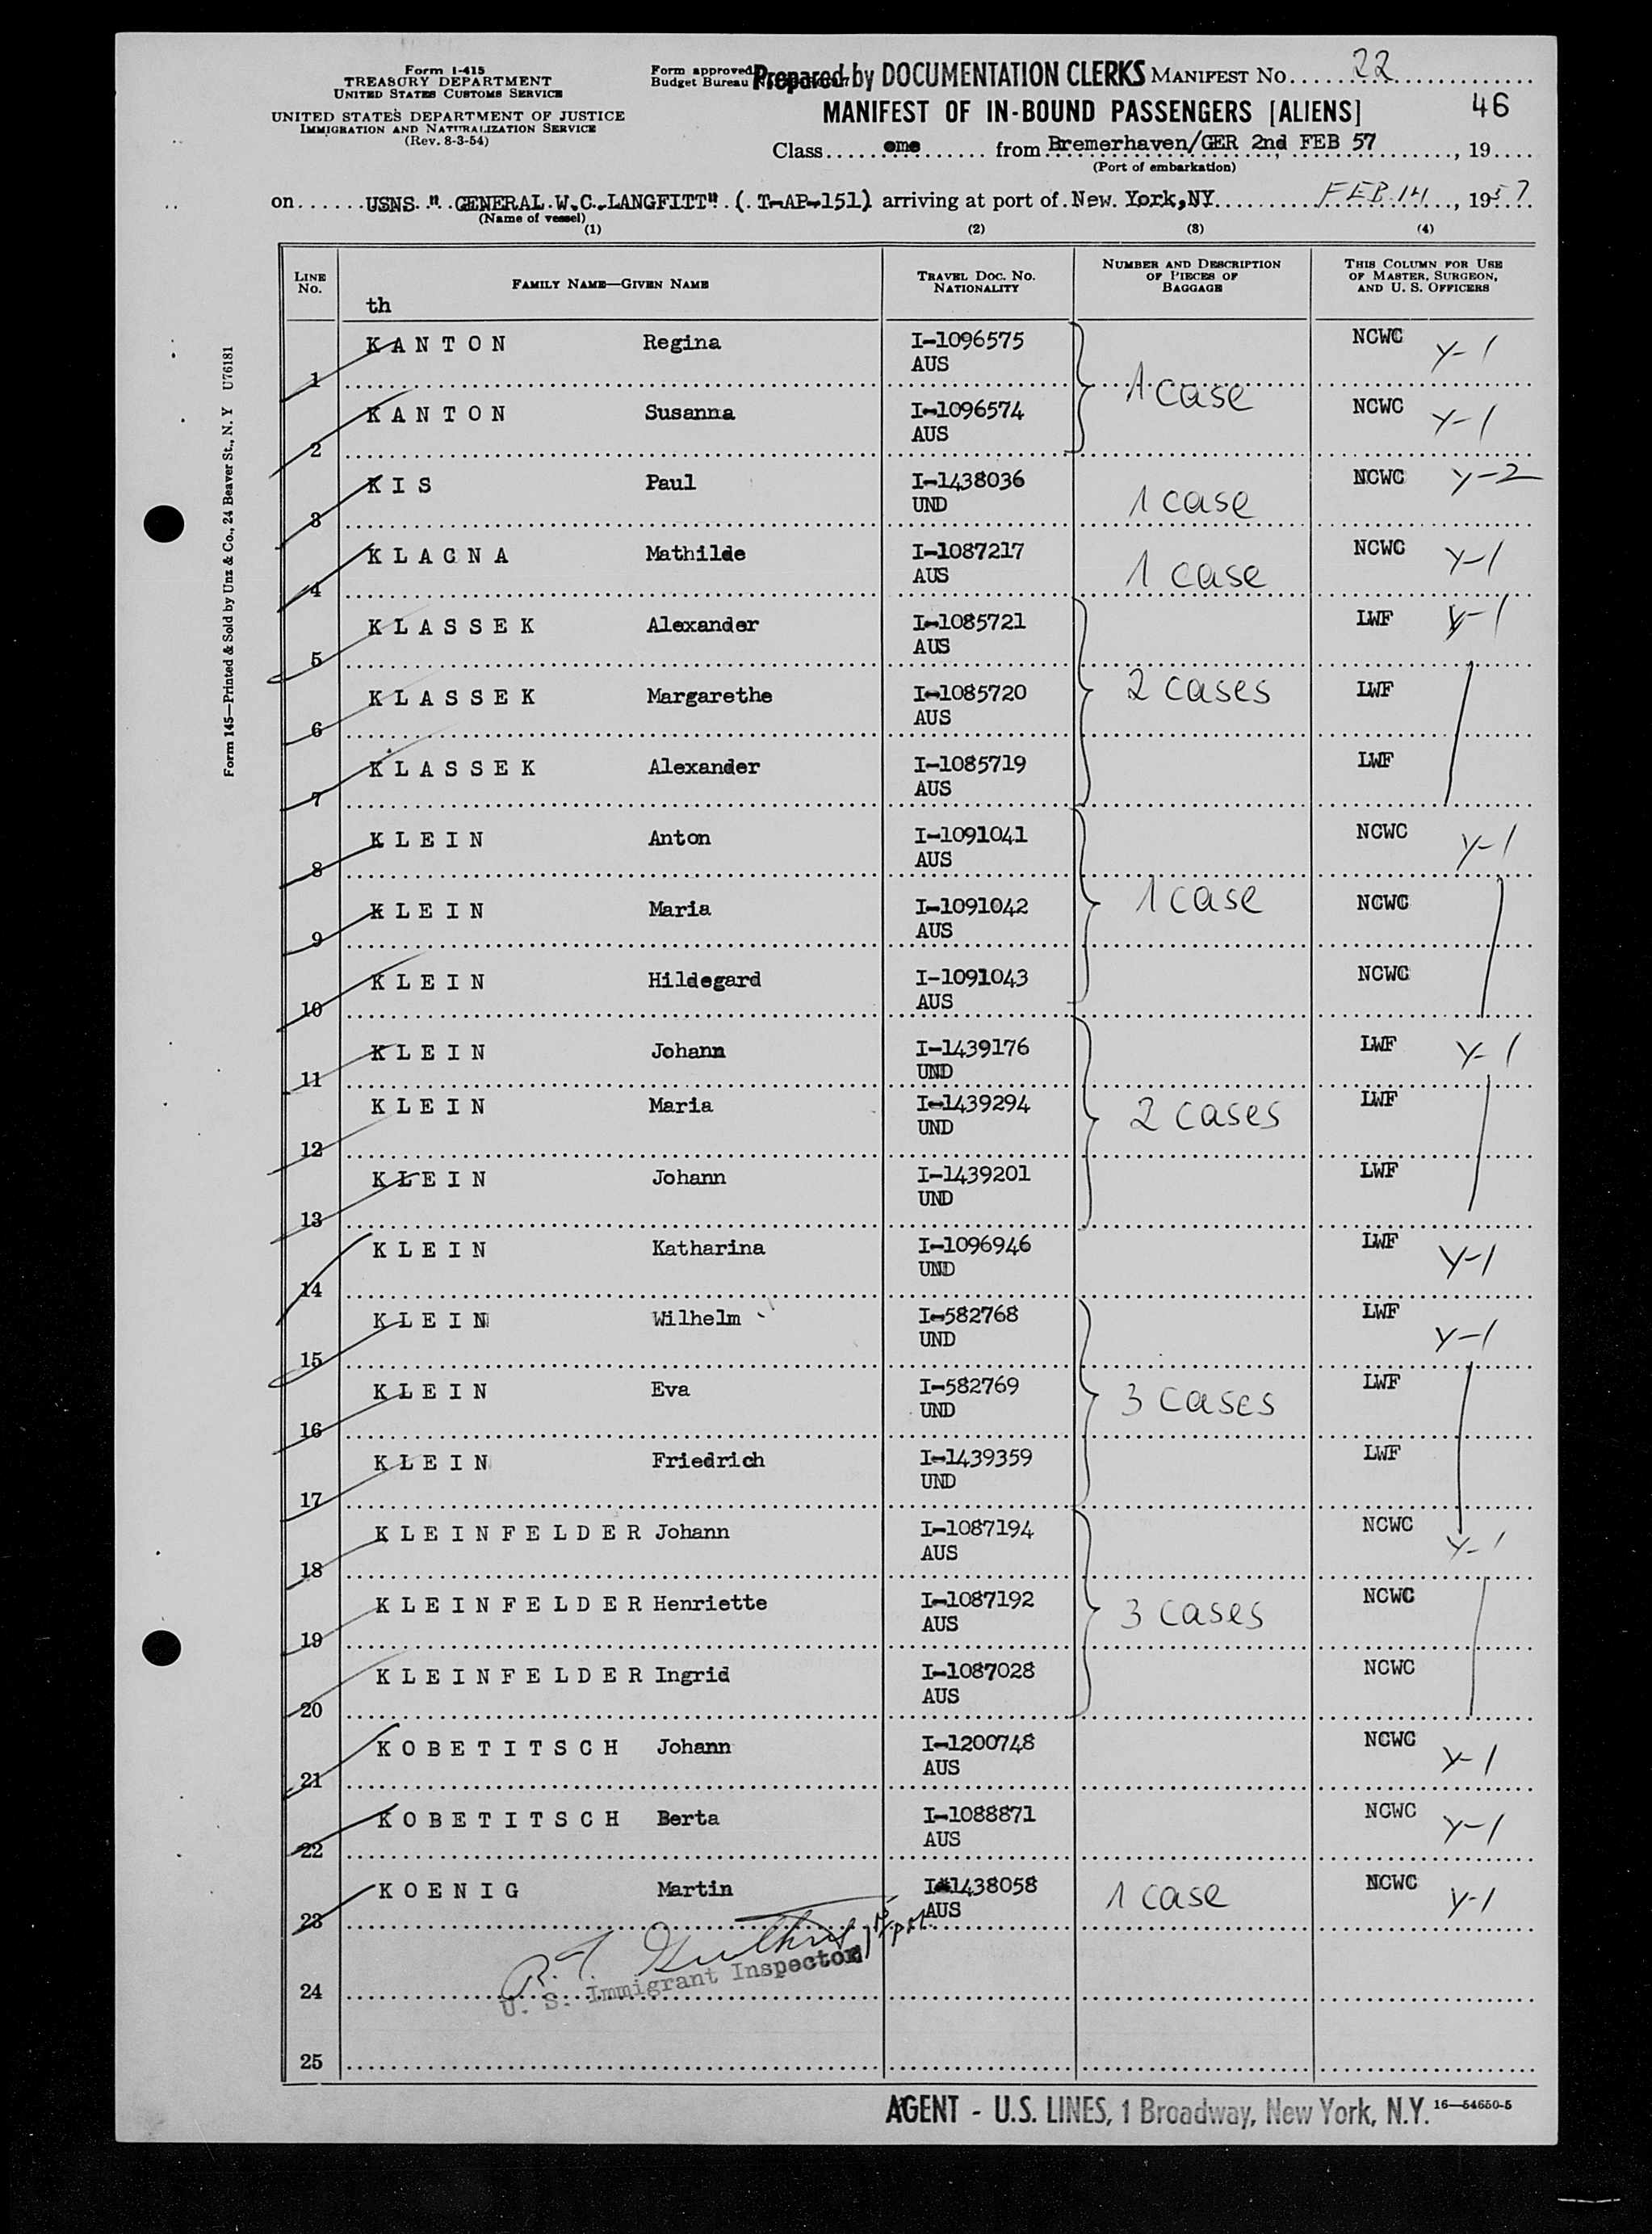 Form I-415
TREASURY DEPARTMENT
UNITED STATES CUSTOMS SERVICE
UNITED STATES DEPARTMENT OF JUSTICE
IMMIGRATION AND NATURALIZATION SERVICE
(Rev. 8-3-54)
Form approved
Budget Bureau
Prepared by DOCUMENTATION CLERKS MANIFEST NO. 22
MANIFEST OF IN-BOUND PASSENGERS [ALIENS] 46
Class one from Bremerhaven/GER 2nd FEB 57, 19
(Port of embarkation)
on USNS " GENERAL W.C. LANGFITT" ( T-AP-151) arriving at port of New York,NY FEB 14, 1957
(Name of vessel)
(1) (2) (3) (4)
LINE NO. FAMILY NAME—GIVEN NAME TRAVEL DOC. NO. NATIONALITY NUMBER AND DESCRIPTION OF PIECES OF BAGGAGE THIS COLUMN FOR USE OF MASTER, SURGEON, AND U. S. OFFICERS
th
1 KANTON Regina I-1096575 AUS 1 case NCWC Y-1
2 KANTON Susanna I-1096574 AUS NCWC Y-1
3 KIS Paul I-1438036 UND 1 case NCWC Y-2
4 KLAGNA Mathilde I-1087217 AUS 1 case NCWC Y-1
5 KLASSEK Alexander I-1085721 AUS LWF Y-1
6 KLASSEK Margarethe I-1085720 AUS 2 cases LWF
7 KLASSEK Alexander I-1085719 AUS LWF
8 KLEIN Anton I-1091041 AUS NCWC Y-1
9 KLEIN Maria I-1091042 AUS 1 case NCWC
10 KLEIN Hildegard I-1091043 AUS NCWC
11 KLEIN Johann I-1439176 UND LWF Y-1
12 KLEIN Maria I-1439294 UND 2 cases LWF
13 KLEIN Johann I-1439201 UND LWF
14 KLEIN Katharina I-1096946 UND LWF Y-1
15 KLEIN Wilhelm I-582768 UND LWF Y-1
16 KLEIN Eva I-582769 UND 3 cases LWF
17 KLEIN Friedrich I-1439359 UND LWF
18 KLEINFELDER Johann I-1087194 AUS NCWC Y-1
19 KLEINFELDER Henriette I-1087192 AUS 3 cases NCWC
20 KLEINFELDER Ingrid I-1087028 AUS NCWC
21 KOBETITSCH Johann I-1200748 AUS NCWC Y-1
22 KOBETITSCH Berta I-1088871 AUS NCWC Y-1
23 KOENIG Martin I-1438058 AUS 1 case NCWC Y-1
U. S. Immigrant Inspector
24
25
AGENT - U.S. LINES, 1 Broadway, New York, N.Y. 16—54650-5
Form 145—Printed & Sold by Unz & Co., 24 Beaver St., N. Y U76181